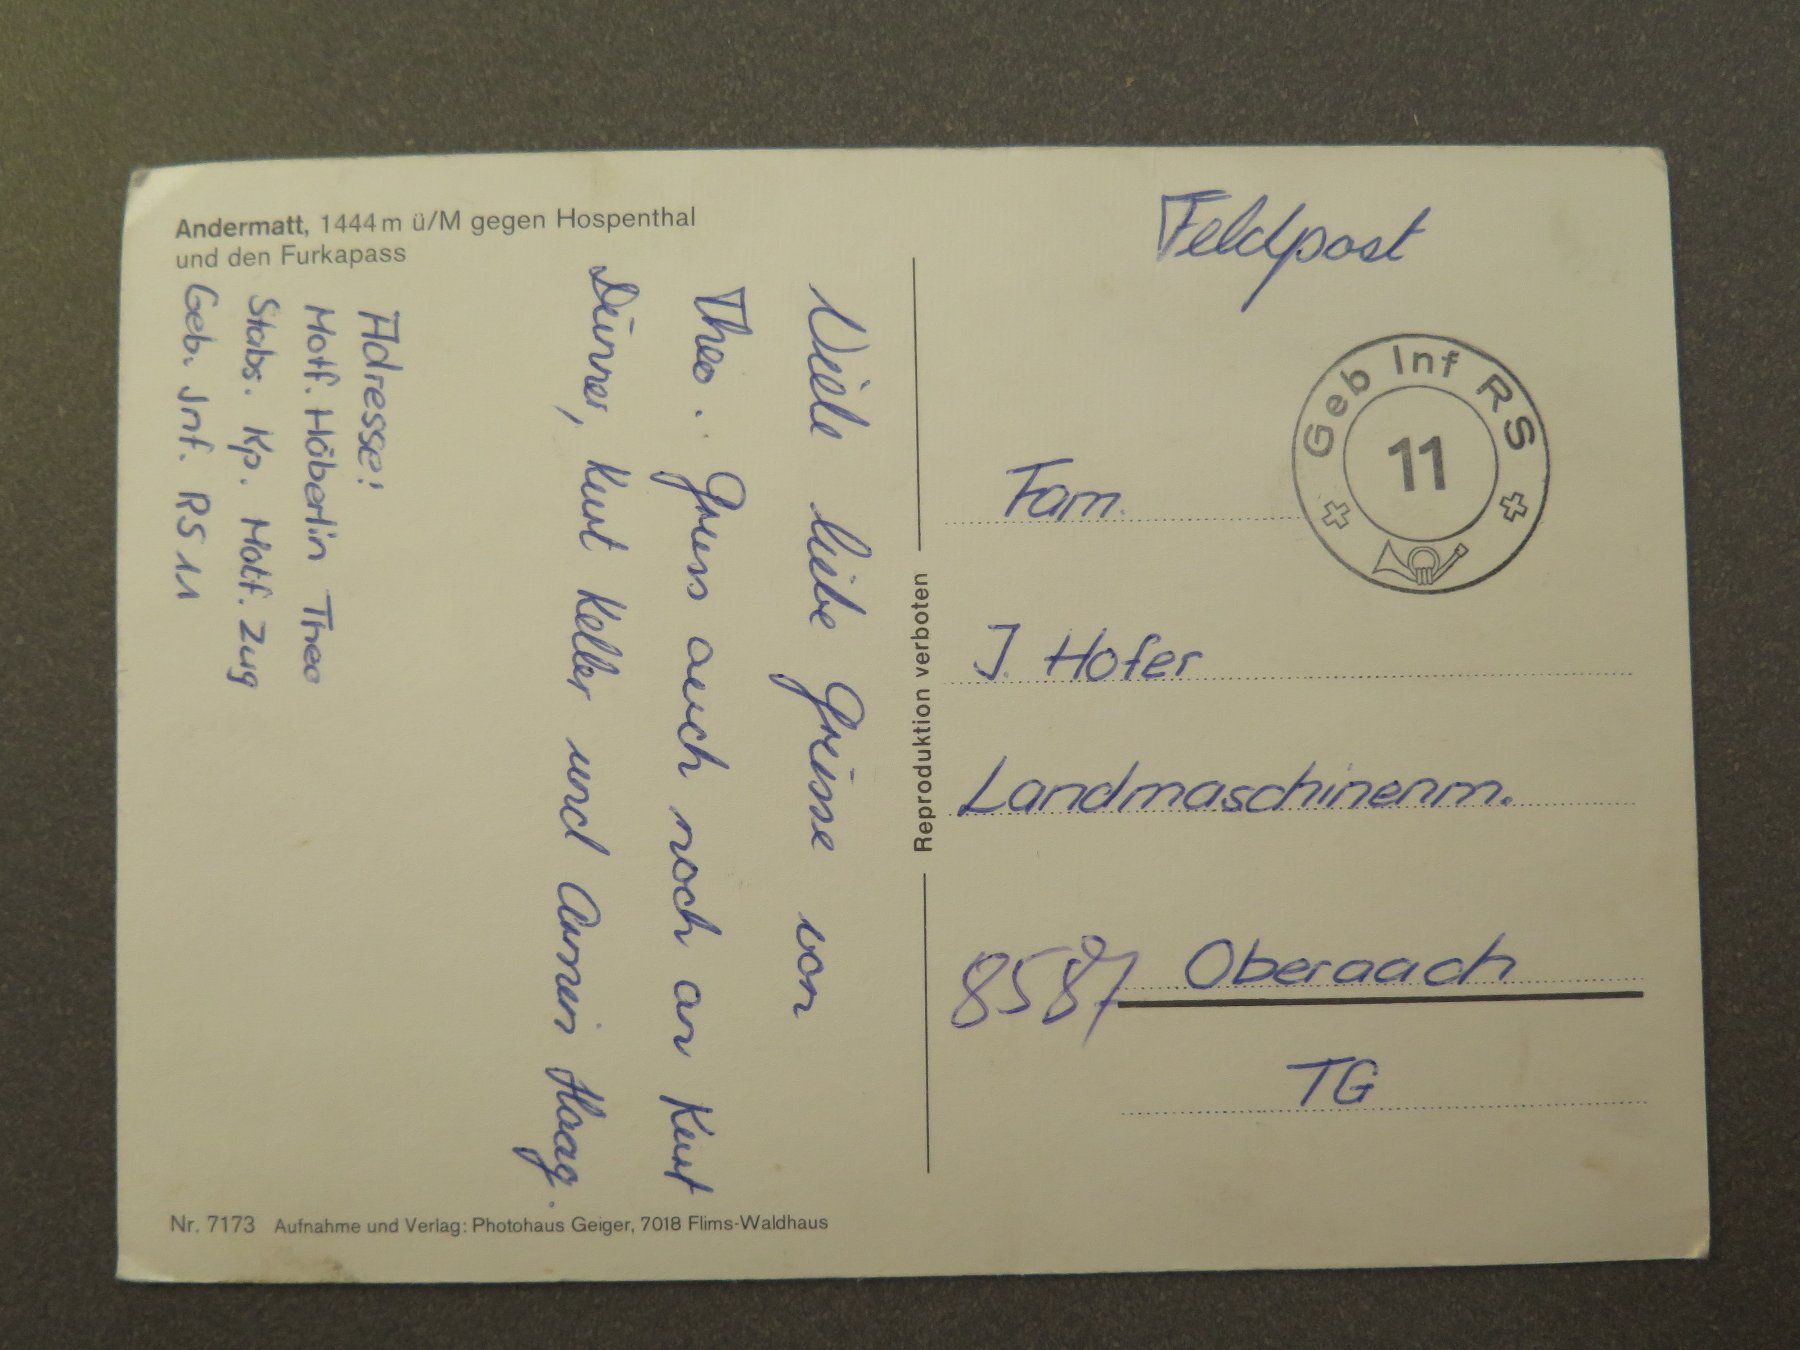 Andermatt, 1444 m ü/M gegen Hospenthal
und den Furkapass
Viele liebe Grüsse von
Theo. Gruss auch noch an Kurt
Dünner, Kurt Keller und Armin Haag.
Adresse:
Motf. Häberlin Theo
Stabs. Kp. Motf. Zug
Geb. Inf. RS 11
Nr. 7173 Aufnahme und Verlag: Photohaus Geiger, 7018 Flims-Waldhaus
Reproduktion verboten
Feldpost
Geb Inf RS
11
Fam.
J. Hofer
Landmaschinenm.
8587 Oberaach
TG